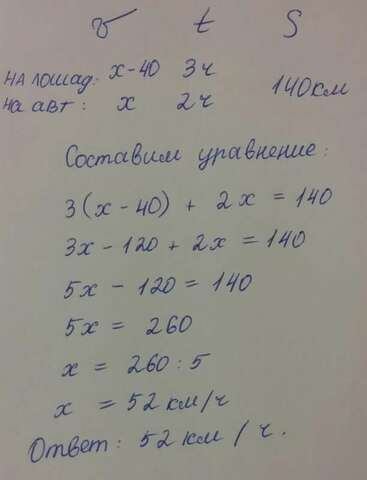 v t S
на лошад: x-40 3ч
на авт: x 2ч 140км
Составим уравнение:
3(x-40) + 2x = 140
3x - 120 + 2x = 140
5x - 120 = 140
5x = 260
x = 260 : 5
x = 52 км/ч
Ответ: 52 км/ч.